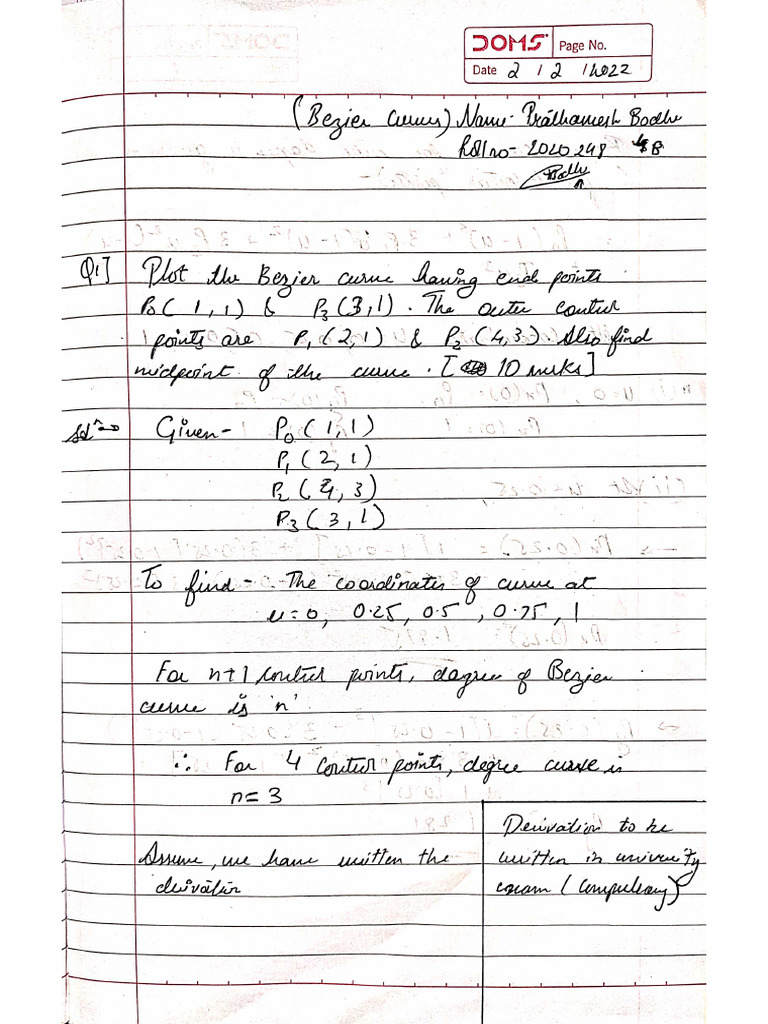 DOMS Page No.
Date 2 / 2 / 2022
(Bezier Curves) Name- Prathamesh Bodhe
Roll no- 2020 248 B
Bodhe
Q1] Plot the Bezier curve having end points
P0( 1, 1) & P3 (3,1). The outer control
points are P1 (2,1) & P2 (4,3). Also find
midpoint of the curve. [ 10 marks]
Soln→ Given- P0 ( 1, 1)
P1 ( 2, 1)
P2 ( 4, 3)
P3 ( 3, 1)
To find- The coordinates of curve at
u=0, 0.25, 0.5, 0.75, 1
For n+1 control points, degree of Bezier
curve is 'n'
∴ For 4 control points, degree curve is
n= 3
Assume, we have written the
derivation
Derivation to be
written in university
exam (Compulsory)